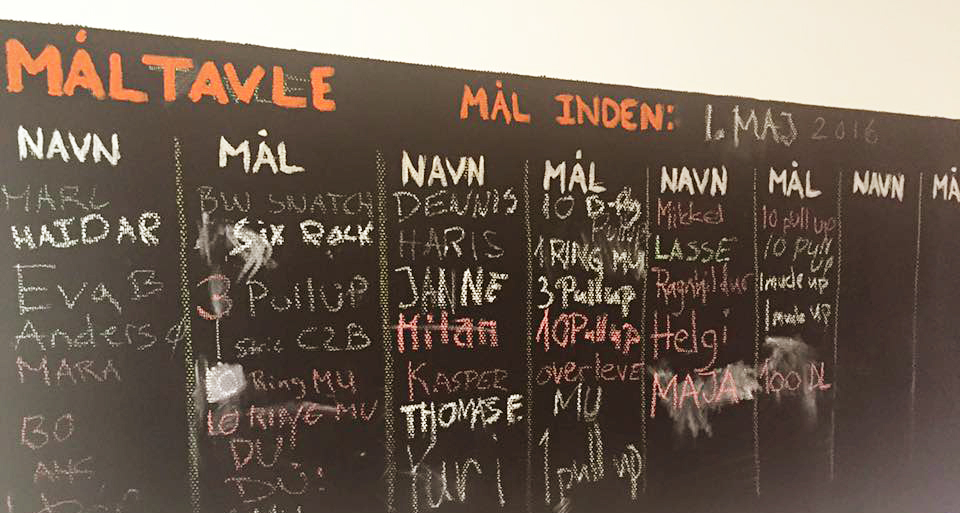 MÅLTAVLE
MÅL INDEN: 1. MAJ 2016
NAVN MÅL NAVN MÅL NAVN MÅL NAVN MÅ
MARC BW SNATCH DENNIS 10 Mikkel 10 pull up
HAIDAR Six Pack HARIS 1 RING MU LASSE 10 pull up
Eva B 3 PullUP JANNE 3 Pullup 1 mucle up
Anders Ø C2B Milan 10 Pullup Helgi 1 mucle up
MARA Ring MU KASPER overleve MAJA 100 DL
10 RING MU THOMAS E MU
BO DU
DU! Yuri 1 pull up